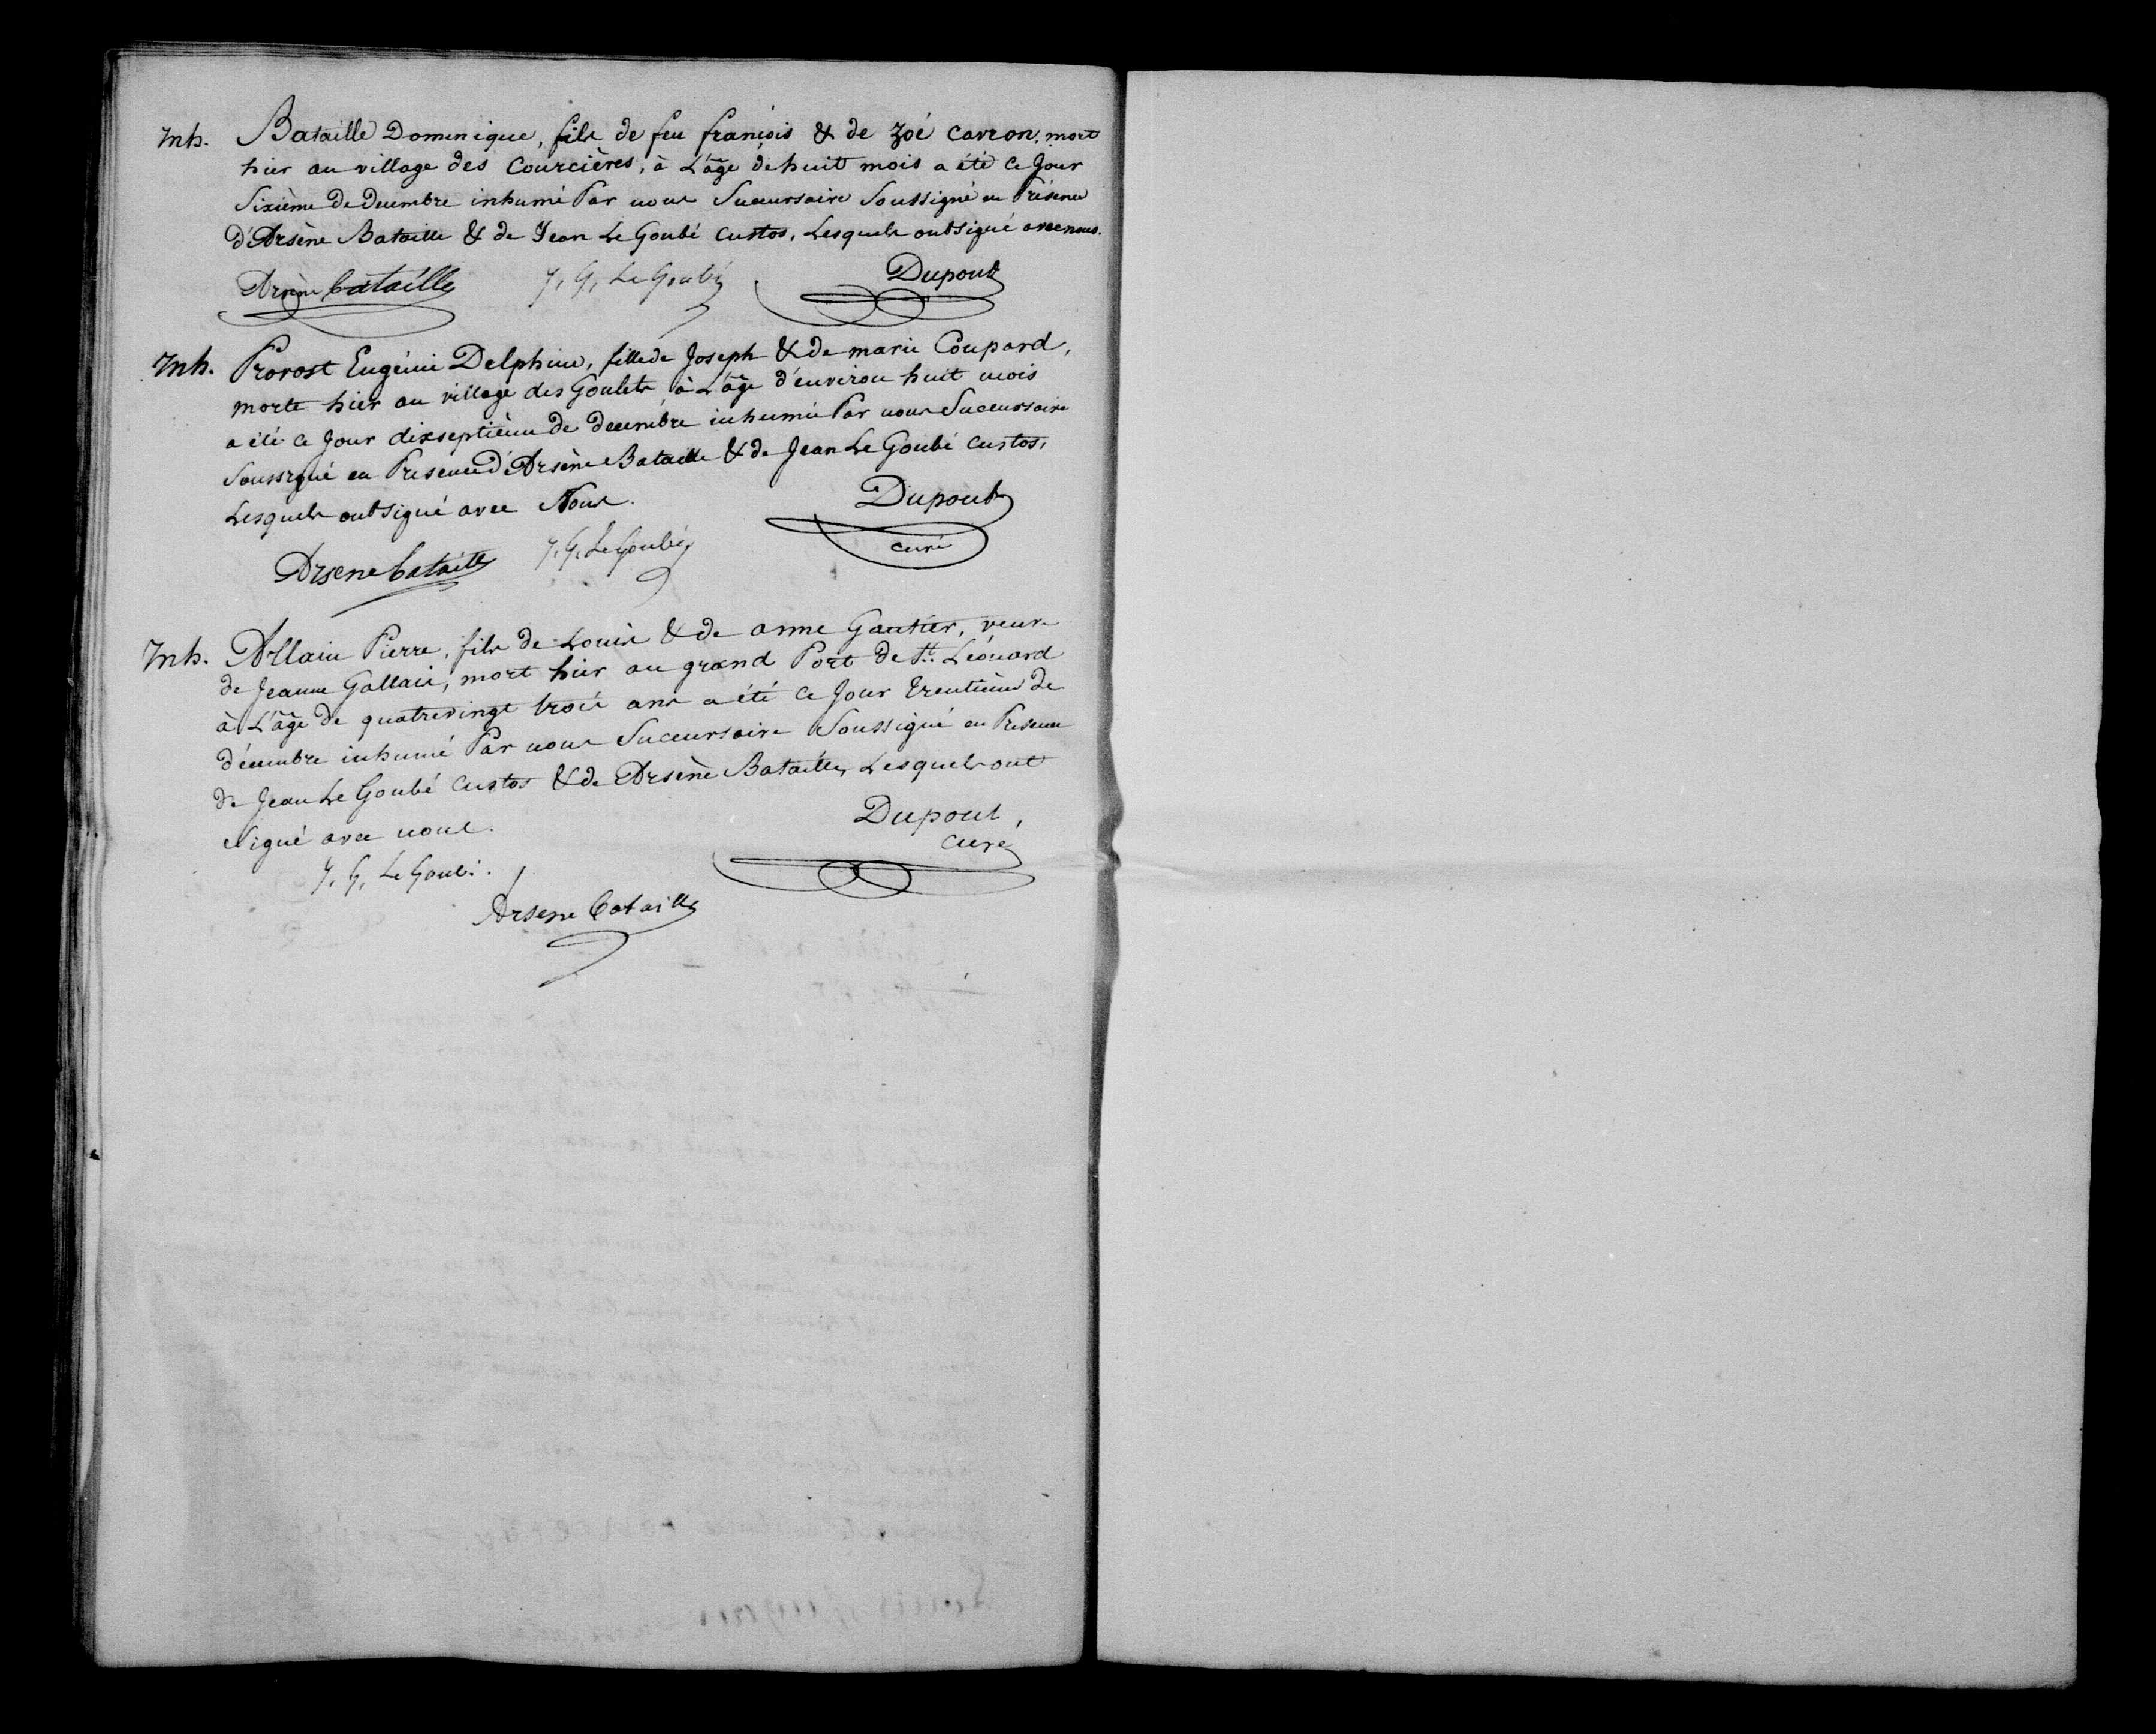 Inh. Bataille Dominique, fils de feu françois & de Zoé Carron, mort
hier au village des Courcières, à L'âge de huit mois a été ce Jour
Sixième de decembre inhumé Par nous Succursaire Soussigné en Présence
d'Arsène Bataille & de Jean Le Goubé custos, Lesquels ont signé avec nous.
Arsène bataille J. G. Le Goubé Dupont
Inh. Provost Eugénie Delphine, fille de Joseph & de marie Coupard,
morte hier au village des Goulets, à L'âge d'environ huit mois
a été ce Jour dixseptième de decembre inhumée Par nous Succursaire
Soussigné en Presence d'Arsène Bataille & de Jean Le Goubé custos,
Lesquels ont signé avec Nous.
Dupont
curé
Arsene bataille J. G. Le Goubé
Inh. Allain Pierre, fils de Louis & de anne Gautier, veuf
de Jeanne Gallais, mort hier au grand Port de St. Léonard
à L'âge de quatrevingt trois ans a été ce Jour trentième de
décembre inhumé Par nous Succursaire Soussigné en Presence
de Jean Le Goubé custos & de Arsène Bataille, Lesquels ont
signé avec nous.
Dupont,
curé
J. G. Le Goubé.
Arsene bataille